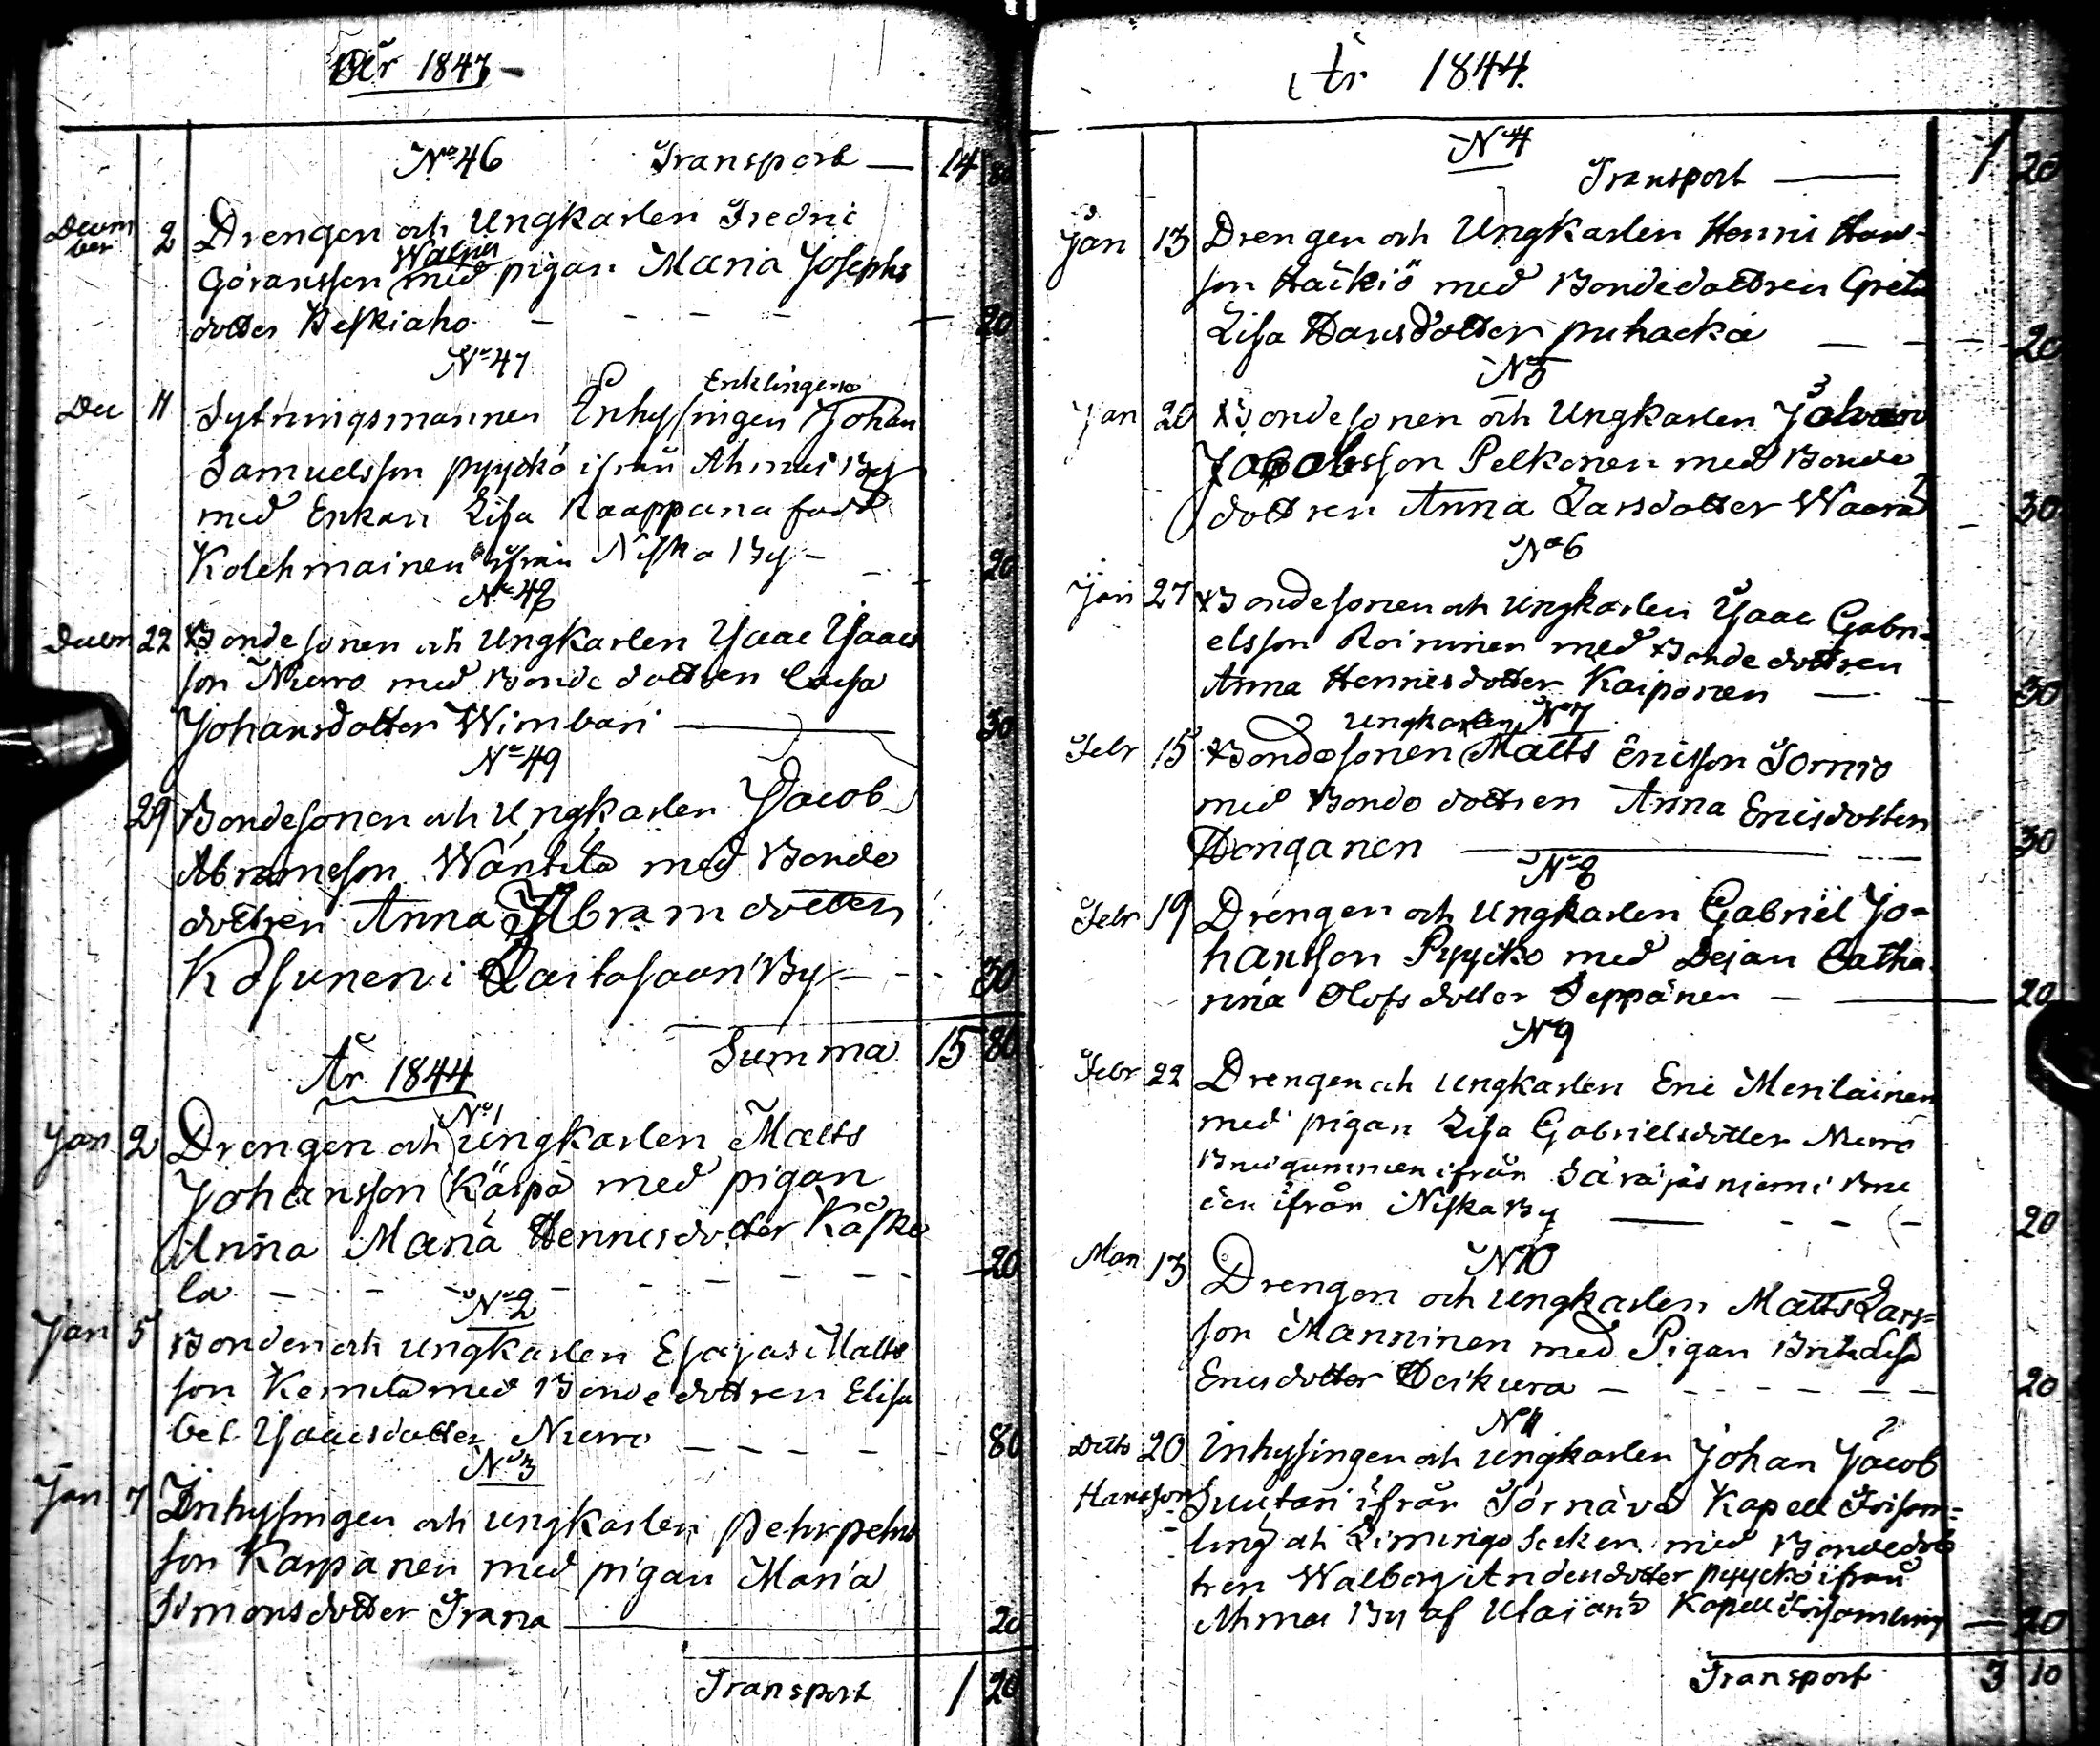 År 1843
No 46 Transport — 14 80
Decem
ber 2 Drengen och Ungkarlen Fredric
Göransson Walner med pigan Maria Josephs
dotter Keskiaho — 20
No 47
Dec 11 Sytningsmannen Inhysingen Enklingen Johan
Samuelsson Pyyckö ifrån Ahmas By
med Enkan Lisa Kaappana född
Kolehmainen ifrån Niska By — 20
No 48
Decbr 22 Bondesonen och Ungkarlen Isaac Isaacs
son Niemo med Bonde dottren Caisa
Johansdotter Wimbari — 30
No 49
29 Bondesonen och Ungkarlen Jacob
Abramsson Wäntilä med Bonde
dottren Anna Abram dotter
Kosunen i Laitasaari By — 30
Summa 15 80
År 1844
No 1
Jan 2 Drengen och Ungkarlen Matts
Johansson Käspä med pigan
Anna Maria Hennesdotter Käske
la — 20
No 2
Jan 5 Bonden och Ungkarlen Esajas Matts
son Kemilä med Bonde dottren Elisa
bet Isaacsdotter Niemo — 80
No 3
Jan 7 Inhysingen och Ungkarlen Pehr Pehrs
son Karpanen med pigan Maria
Simonsdotter Trana — 20
Transport 1 20
År 1844.
No 4
Transport — 1 20
Jan 13 Drengen och Ungkarlen Henric Hans-
son Häikiö med Bondedottren Greta
Lisa Hansdotter Puhacka — 20
No 5
Jan 20 Bondesonen och Ungkarlen Johan
Jacobsson Pelkonen med Bonde
dottren Anna Larsdotter Waara — 30
No 6
Jan 27 Bondesonen och Ungkarlen Isaac Gabri-
elsson Roininen med Bonde dottren
Anna Hennesdotter Kaiponen — 30
No 7
Febr 15 Bondesonen Ungkarlen Matts Ericsson Tornio
med Bonde dottren Anna Ericsdotter
Honganen — 30
No 8
Febr 19 Drengen och Ungkarlen Gabriel Jo-
hansson Pyyckö med Dejan Catha
rina Olofsdotter Seppänen — 20
No 9
Febr 22 Drengen och Ungkarlen Eric Meriläinen
med pigan Lisa Gabrielsdotter Niemo
Brudgummen ifrån Säräjäsniemi Bru
den ifrån Niska By — 20
No 10
Mars 13 Drengen och Ungkarlen Matts Lars-
son Manninen med Pigan Brita Lisa
Ericsdotter Heikura — 20
No 11
Ditto 20 Inhysingen och Ungkarlen Johan Jacob
Hansson Suutari ifrån Törnävä Kapell Församl=
ling och Limingo Socken med Bondedot
tren Walborg Andersdotter Pyyckö ifrån
Ahmas By af Utajärvi Kapell Församling — 20
Transport 3 10